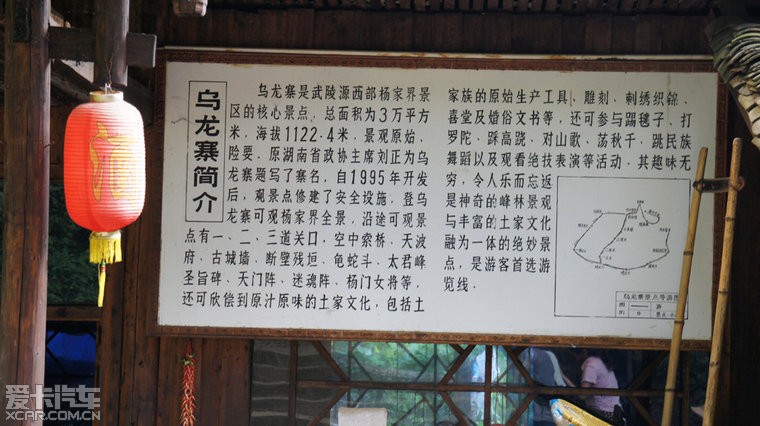 乌龙寨简介
乌龙寨是武陵源西部杨家界景
区的核心景点，总面积为3万平方
米，海拔1122·4米，景观原始、
险要．原湖南省政协主席刘正为乌
龙寨题写了寨名，自1995年开发
后，观景点修建了安全设施．登乌
龙寨可观杨家界全景，沿途可观景
点有一、二、三道关口，空中索桥、天波
府、古城墙、断壁残垣、龟蛇斗、太君峰
圣旨碑、天门阵、迷魂阵、杨门女将等，
还可欣尝到原汁原味的土家文化，包括土
家族的原始生产工具、雕刻、刺绣织锦、
喜堂及婚俗文书等，还可参与踢毽子、打
罗陀、踩高跷、对山歌、荡秋千、跳民族
舞蹈以及观看绝技表演等活动．其趣味无
穷，令人乐而忘返
是神奇的峰林景观
与丰富的土家文化
融为一体的绝妙景
点，是游客首选游
览线．
乌龙寨景点导游图
酒
爱卡汽车
XCAR.COM.CN